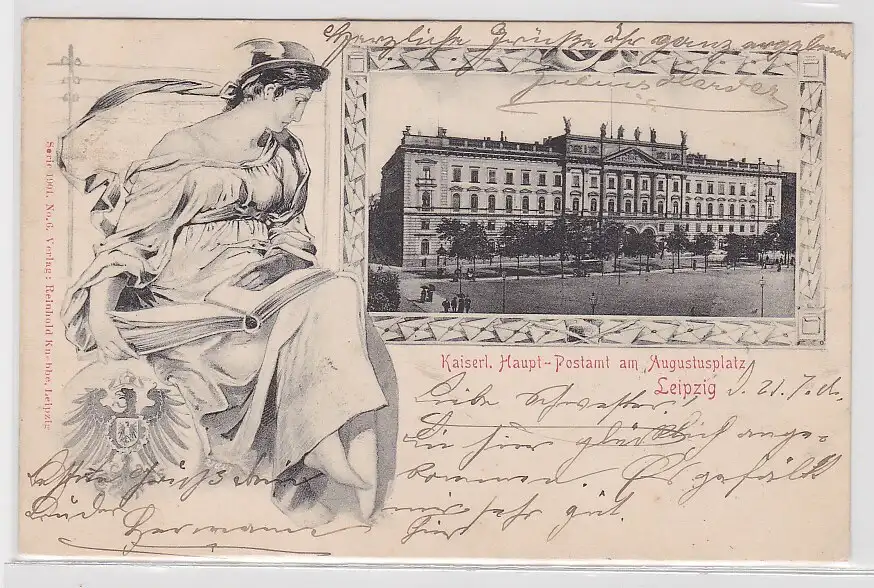 Herzliche Grüße Ihr ganz ergebener
Serie 1901. No. 6. Verlag: Reinhold Kuebbe, Leipzig
Kaiserl. Haupt-Postamt am Augustusplatz
Leipzig
d. 21.7.
Liebe Schwester!
Bin hier glücklich ange-
kommen. Es gefällt
mir sehr gut
hier
Besten Gruß dein
Bruder
Hermann